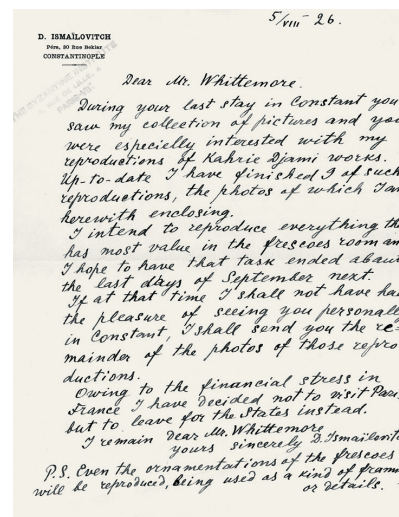 5/VIII 26.
D. ISMAÏLOVITCH
Péra, 20 Rue Bekiar
CONSTANTINOPLE
THE BYZANTINE INSTITUTE
Dear Mr. Whittemore.
During your last stay in Constant you
saw my collection of pictures and you
were especially interested with my
reproductions of Kahrie Djami works.
Up-to-date I have finished 9 of such
reproductions, the photos of which I am
herewith enclosing.
I intend to reproduce everything th
has most value in the frescoes room an
I hope to have that task ended about
the last days of September next.
If at that time I shall not have had
the pleasure of seeing you personall
in Constant, I shall send you the re-
mainder of the photos of those repro
ductions.
Owing to the financial stress in
France I have decided not to visit Pari
but to leave for the States instead.
I remain dear Mr. Whittemore
yours sincerely D. Ismaïlovit
P.S. Even the ornamentations of the frescoes
will be reproduced, being used as a kind of fram
or details.